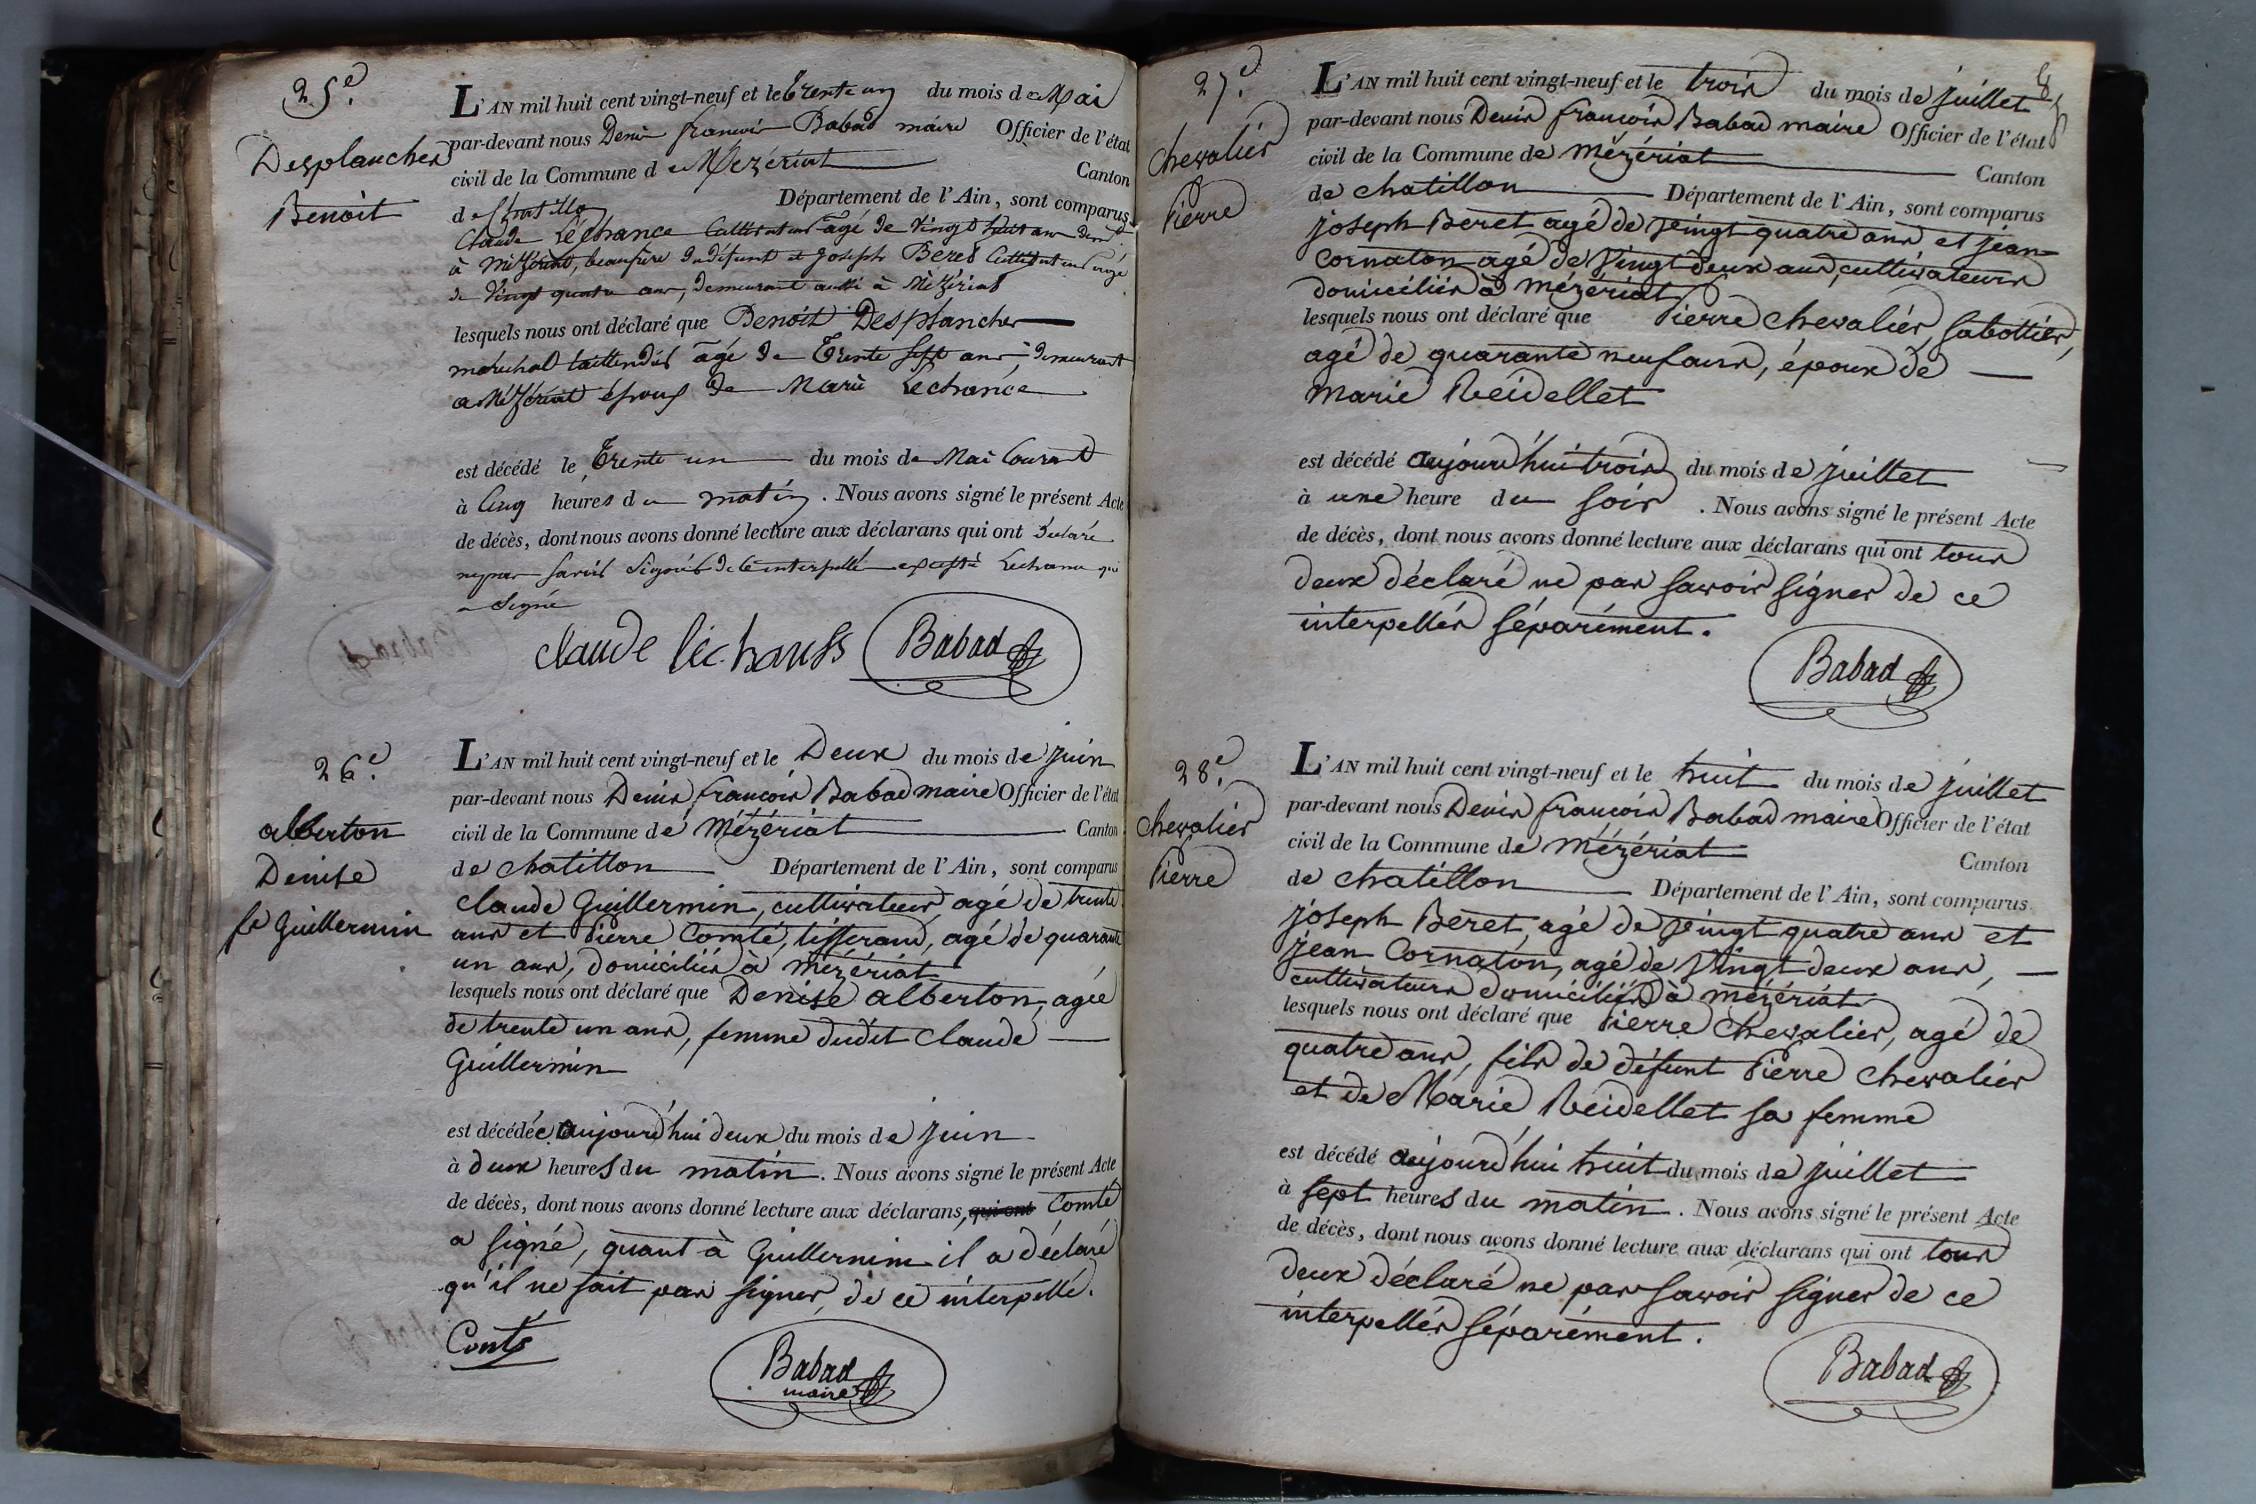 25e.
Desplanches
Benoit
L'AN mil huit cent vingt-neuf et le trente un du mois de Mai
par-devant nous Denis françois Babad maire Officier de l'état
civil de la Commune de Mézériat Canton
de Chatillon Département de l'Ain, sont comparus
Claude Léchance Cultivateur âgé de vingt huit ans dem.t
à Mézériat, beaufrère du défunt et Joseph Beret Cultivateur âgé
de vingt quatre ans, demeurant aussi à Mézériat
lesquels nous ont déclaré que Benoit Desplanches
maréchal taillandier âgé de trente sept ans, demeurant
a Mézériat époux de Marie Lechance
est décédé le trente un du mois de Mai Courant
à Cinq heures du matin. Nous avons signé le présent Acte
de décès, dont nous avons donné lecture aux déclarans qui ont déclaré
ne pas savoir signer de ce interpellé excepté Lechance qui
a signé
claude léchanss Babad
26e.
alberton
Denise
fe Guillermin
L'AN mil huit cent vingt-neuf et le Deux du mois de juin
par-devant nous Denis françois Babad maire Officier de l'état
civil de la Commune de Mézériat Canton
de chatillon Département de l'Ain, sont comparus
claude Guillermin, cultivateur, agé de trente
ans et Pierre Comte, tisserand, agé de quarante
un ans, domiciliés à Mézériat
lesquels nous ont déclaré que Denise alberton, agée
de trente un ans, femme dudit Claude
Guillermin
est décédée aujourd'hui deux du mois de juin
à deux heures du matin. Nous avons signé le présent Acte
de décès, dont nous avons donné lecture aux déclarans, qui ont Comte
a signé, quant à Guillermin il a déclaré
qu'il ne sait pas signer, de ce interpellé.
Conte
Babad
maire
27e.
chevalier
Pierre
L'AN mil huit cent vingt-neuf et le trois du mois de juillet
par-devant nous Denis françois Babad maire Officier de l'état
civil de la Commune de Mézériat Canton
de chatillon Département de l'Ain, sont comparus
joseph Beret agé de vingt quatre ans et jean
Cornaton agé de vingt deux ans, cultivateurs
domiciliés à mézériat
lesquels nous ont déclaré que Pierre chevalier, sabottier,
agé de quarante neuf ans, époux de
marie Reidellet
est décédé aujourd'hui trois du mois de juillet
à une heure du soir. Nous avons signé le présent Acte
de décès, dont nous avons donné lecture aux déclarans qui ont tous
deux déclaré ne pas savoir signer de ce
interpellés séparément.
Babad
28e.
chevalier
Pierre
L'AN mil huit cent vingt-neuf et le huit du mois de juillet
par-devant nous Denis françois Babad maire Officier de l'état
civil de la Commune de Mézériat Canton
de chatillon Département de l'Ain, sont comparus
joseph Beret, agé de vingt quatre ans et
jean Cornaton, agé de vingt deux ans,
cultivateurs domiciliés à mézériat
lesquels nous ont déclaré que Pierre chevalier, agé de
quatre ans, fils de défunt Pierre chevalier
et de Marie Reidellet sa femme
est décédé aujourd'hui huit du mois de juillet
à sept heures du matin. Nous avons signé le présent Acte
de décès, dont nous avons donné lecture aux déclarans qui ont tous
deux déclaré ne pas savoir signer de ce
interpellés séparément.
Babad